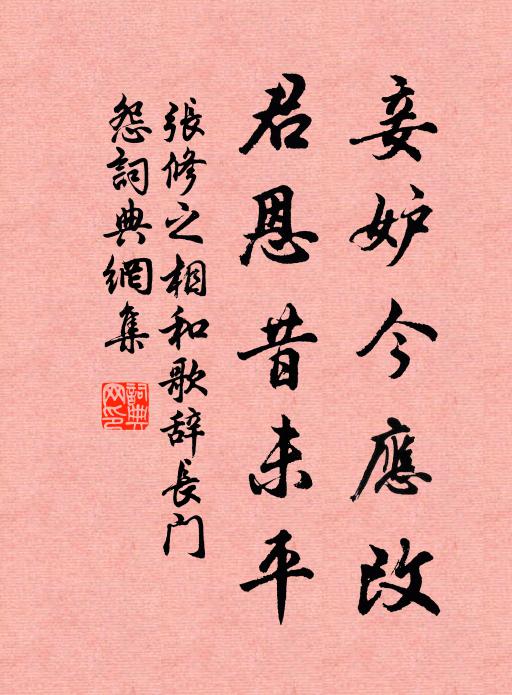 妾妒今應改
君恩昔未平
張修之相和歌辞長门
怨詞典網集
詞典
网印